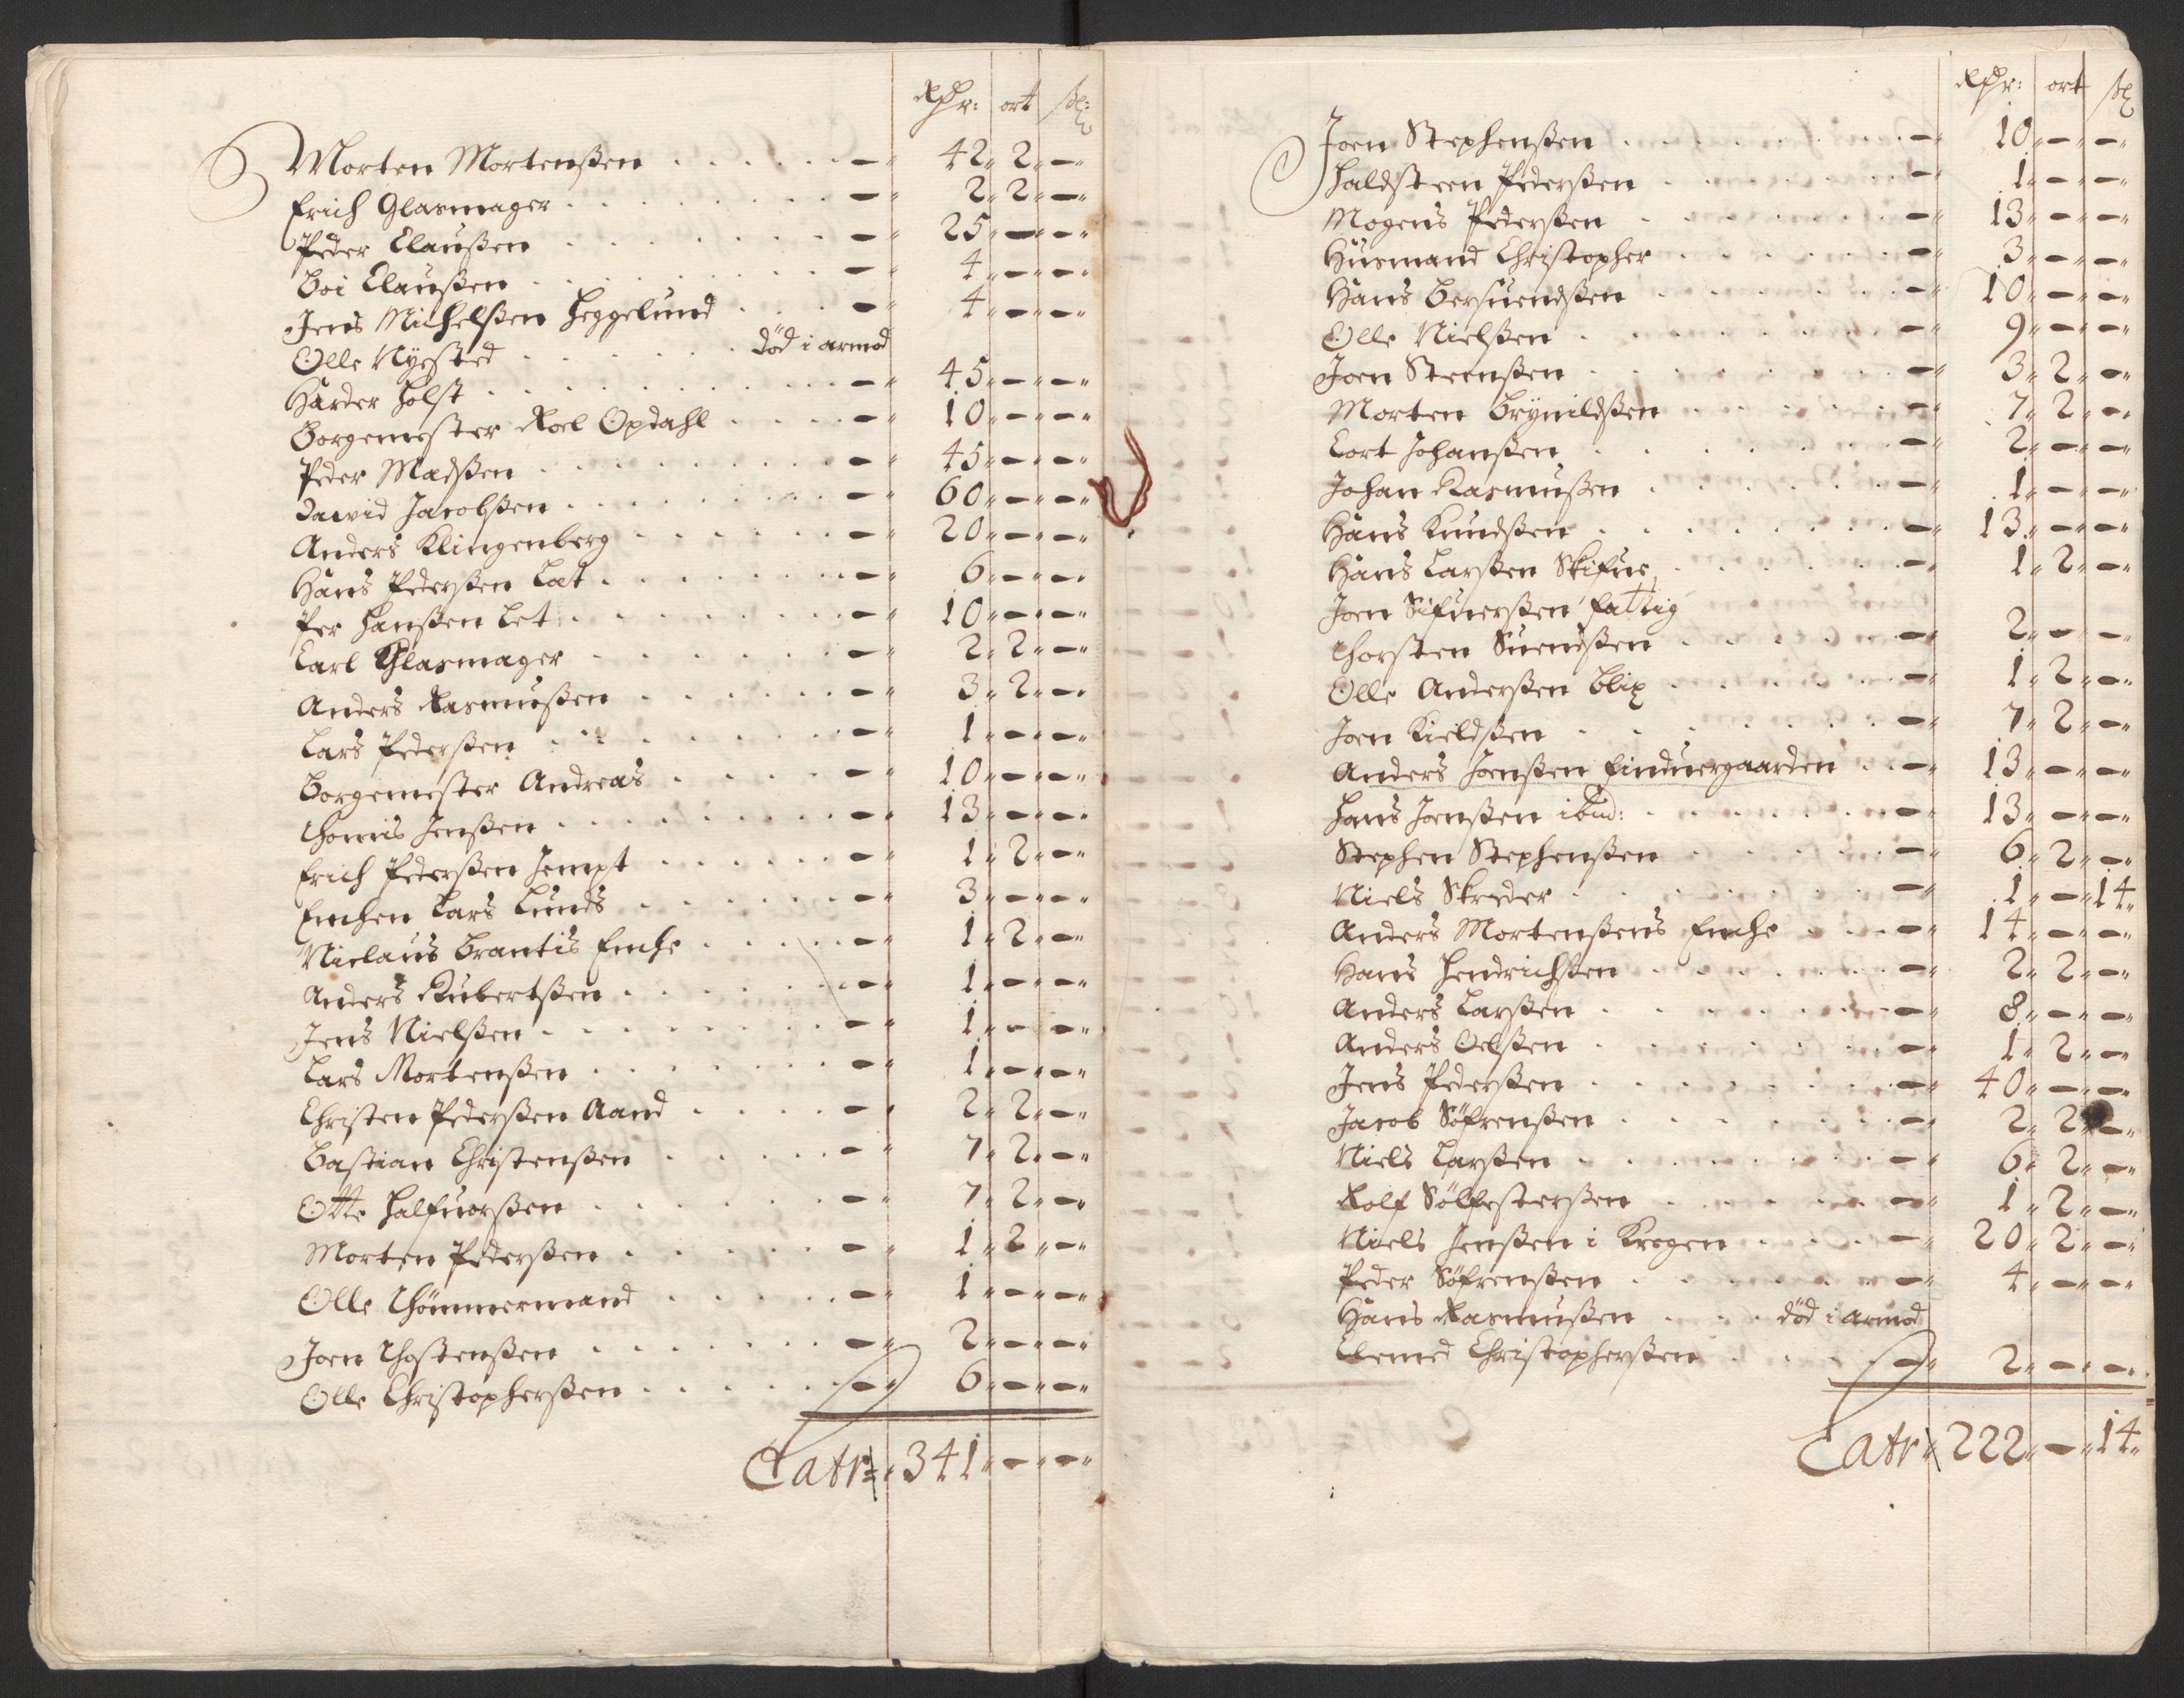 Rdr: ort ſk:
Morten Mortenßen 42 2 –
Erich Glasmager 2 2 –
Peder Claußen 25 – –
Boi Claußen 4 – –
Jens Michelßen Heggelund 4 – –
Olle Nyested død i armod
Harder Holst 45 – –
Borgemester Roel Opdahl 10 – –
Peder Madßen 45 – –
David Jacobßen 60 – –
Anders Klingenberg 20 – –
Hans Pederßen Lat 6 – –
Per Hanßen Let 10 – –
Carl Glasmager 2 2 –
Anders Rasmußen 3 2 –
Lars Pederßen 1 – –
Borgemester Andreas 10 – –
Thomis Jenßen 13 – –
Erich Pederßen Jempt 1 2 –
Enchen Lars Lunds 3 – –
Niclaus Brantis Enche 1 2 –
Anders Rubertßen 1 – –
Jens Nielßen 1 – –
Lars Mortenßen 1 – –
Christen Pederßen Aand 2 2 –
Bastian Christenßen 7 2 –
Otte Halfuorßen 7 2 –
Morten Pederßen 1 2 –
Olle Thömmermand 1 – –
Joen Thostenßen 2 – –
Olle Christopherßen 6 – –
Latr 341 – –
Rdr: ort ſk
Joen Stephenßen 10 – –
Haldsteen Pederßen 1 – –
Mogens Pederßen 13 – –
Husmand Christopher 3 – –
Hans Bersuendßen 10 – –
Olle Nielßen 9 – –
Joen Steenßen 3 2 –
Morten Brynildßen 7 2 –
Cort Johanßen 2 – –
Johan Rasmußen 1 – –
Hans Knudßen 13 – –
Hans Larßen Skifue 1 2 –
Joen Sifuerßen fattig
Thorsten Suendßen 2 – –
Olle Anderßen Blix 1 2 –
Joen Kieldßen 7 2 –
Anders Joenßen Einduergaarden 13 – –
Hans Joenßen ibid: 13 – –
Stephen Stephenßen 6 2 –
Niels Skreder 1 – 14
Anders Mortenßens Enche 14 – –
Hans Hendrichßen 2 2 –
Anders Larßen 8 – –
Anders Oelßen 1 2 –
Jens Pederßen 40 – –
Jacob Söfrenßen 2 2 –
Niels Larßen 6 2 –
Rolf Sölfesterßen 1 2 –
Niels Jenßen i Krogen 20 2 –
Peder Söfrenßen 4 – –
Hans Rasmußen død i armod
Clemed Christopherßen 2 – –
Latr 222 – 14